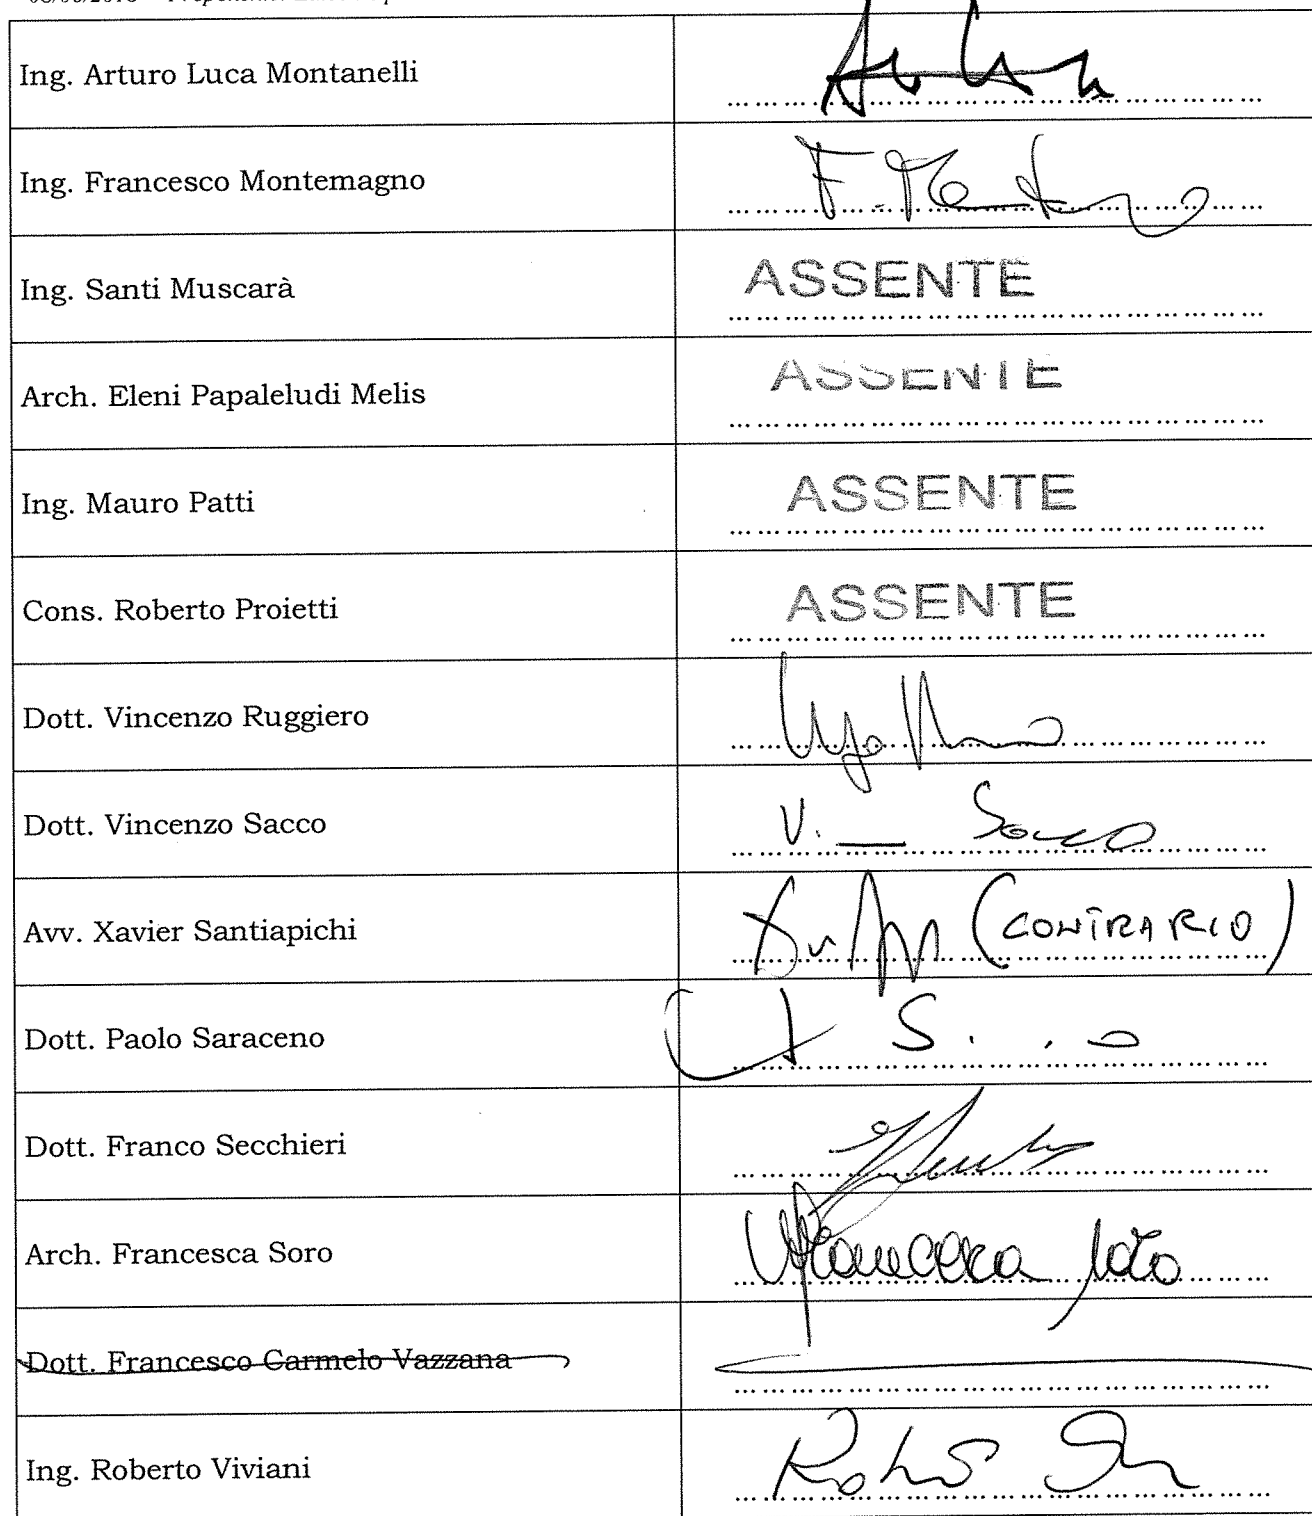 Ing. Arturo Luca Montanelli
Ing. Francesco Montemagno
Ing. Santi Muscarà ASSENTE
Arch. Eleni Papaleludi Melis ASSENTE
Ing. Mauro Patti ASSENTE
Cons. Roberto Proietti ASSENTE
Dott. Vincenzo Ruggiero
Dott. Vincenzo Sacco V. Sacco
Avv. Xavier Santiapichi (CONTRARIO)
Dott. Paolo Saraceno
Dott. Franco Secchieri
Arch. Francesca Soro Francesca Soro
Dott. Francesco Carmelo Vazzana
Ing. Roberto Viviani